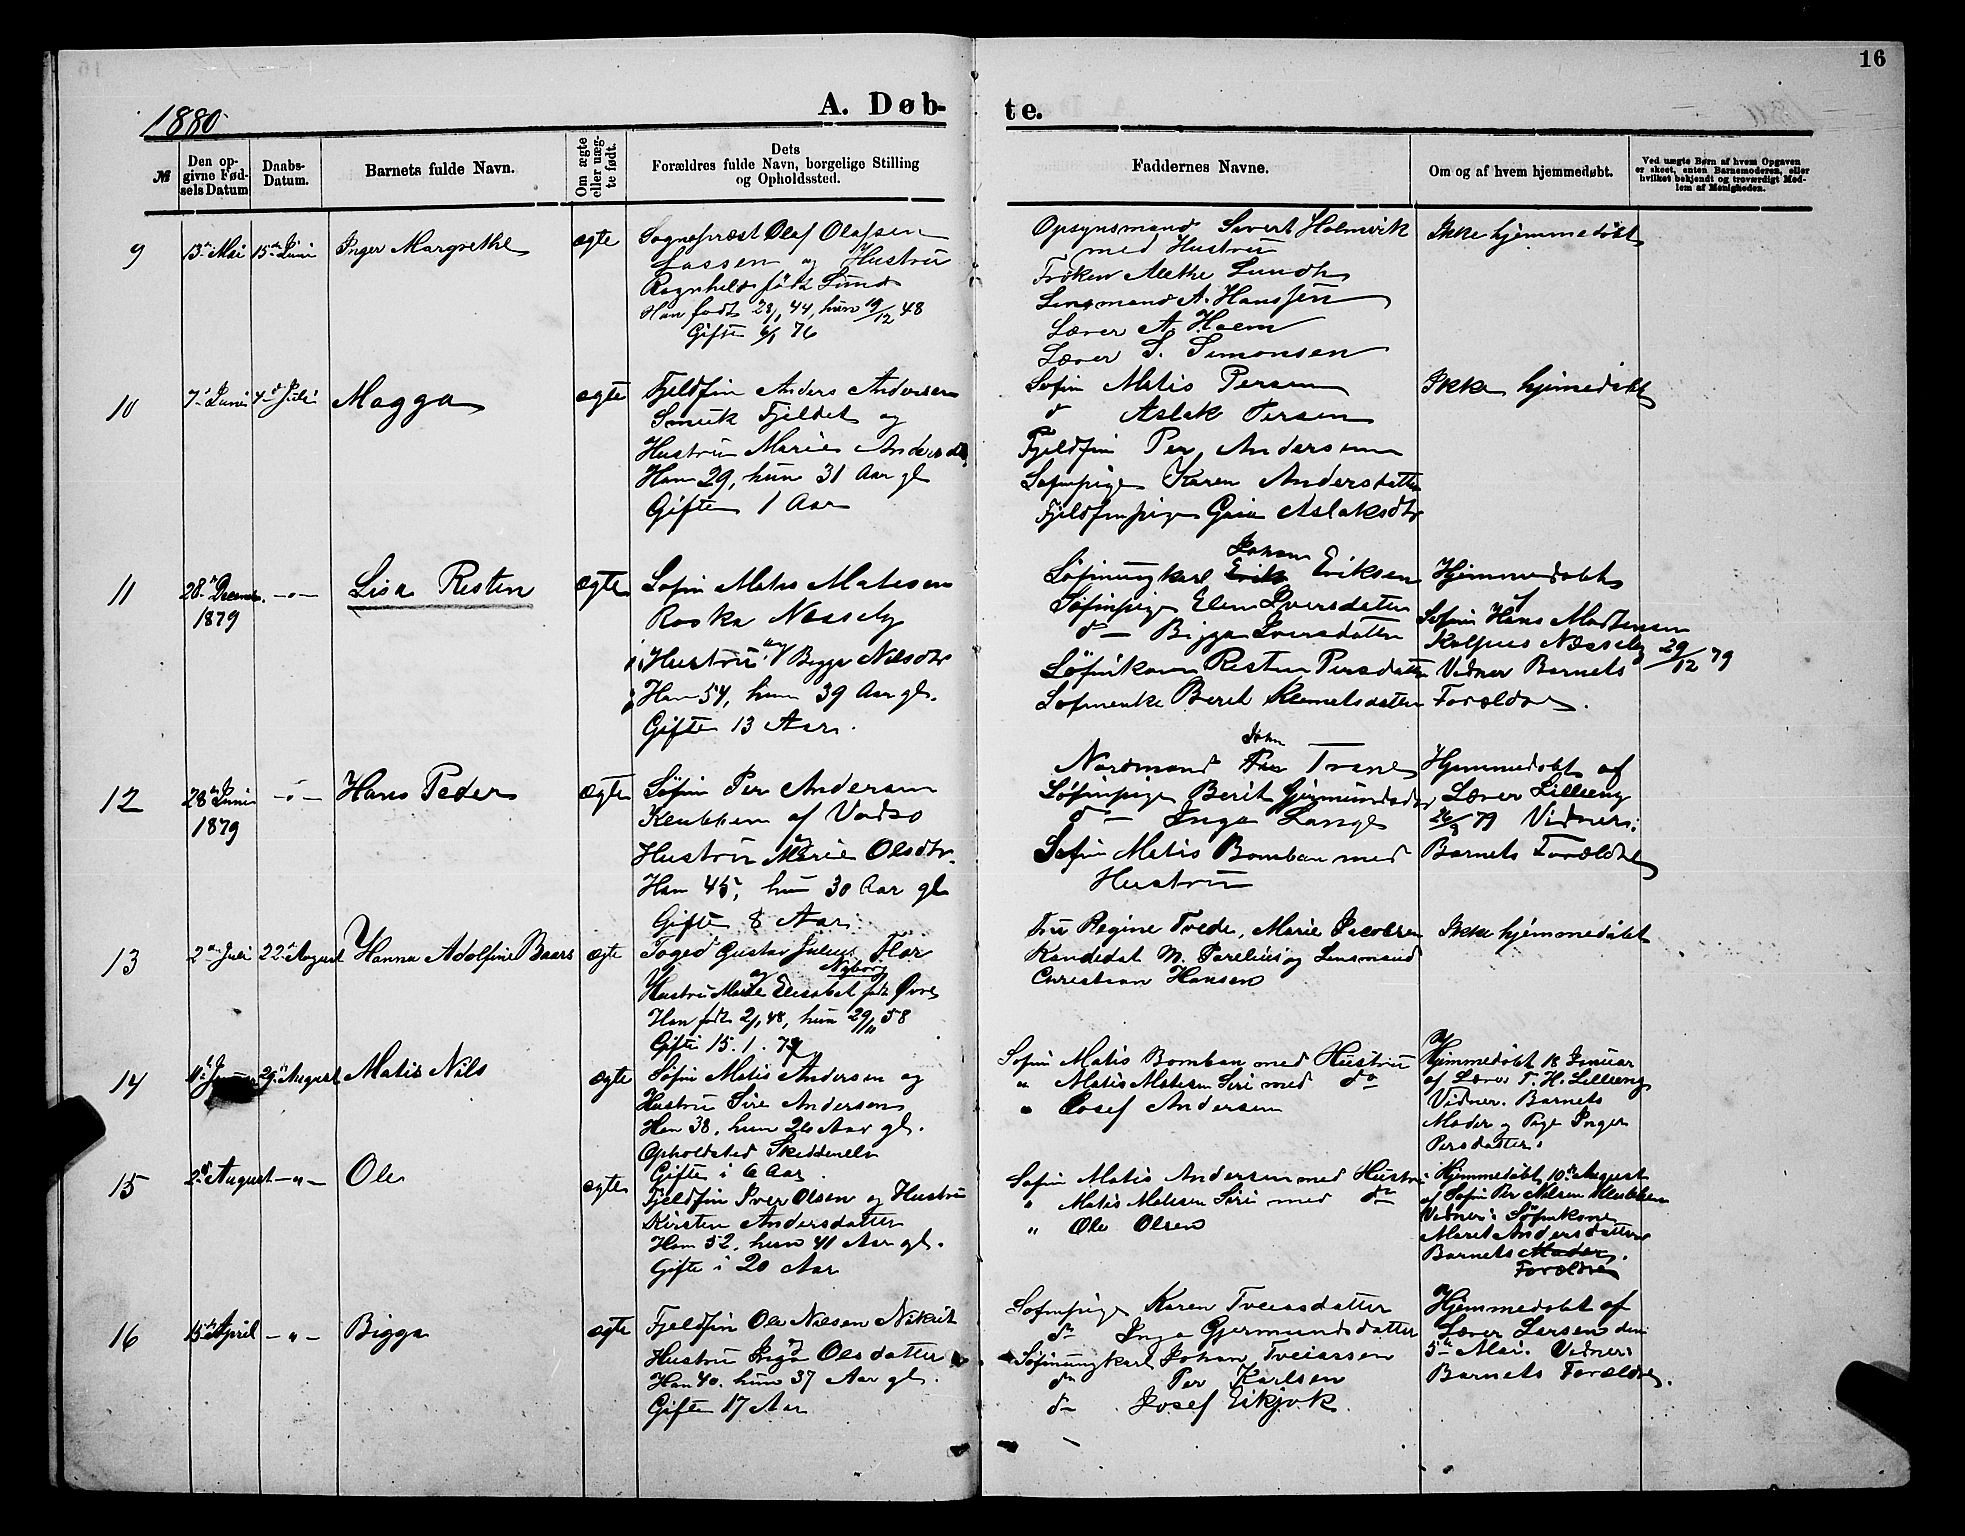 16
1880
A. Døb-
te.
№
Den op-
givne Fød-
sels Datum
Daabs-
Datum.
Barnets fulde Navn.
Om ægte
eller uæg-
te født.
Dets
Forældres fulde Navn, borgelige Stilling
og Opholdssted.
Faddernes Navne.
Om og af hvem hjemmedøbt.
Ved uægte Børn af hvem Opgaven
er skeet, enten Barnemoderen, eller
hvilket bekjendt og troværdigt Med-
lem af Menigheden.
9
13de Mai
15de Juni
Inger Margrethe
ægte
Sognepræst Olaf Olafsen
Lassen og Hustru
Ragnhild født Lund
Han født 28/1 44, hun 19/12 48
Gifte 6/1 76
Opsynsmand Sivert Holmvik
med Hustru
Frøken Alethe Lund
Lensmand A. Hanssen
Lærer A. Hoem
Lærer S. Simonsen
Ikke hjemmedøbt
10
7de Juni
4de Juli
Magga
ægte
Fjeldfin Anders Andersen
Smuk Fjeldet og
Hustru Marie Andersd
Han 29, hun 31 Aar gl
Gifte 1 Aar
Søfin Matis Persen
do Aslak Persen
Fjeldfin Per Andersen
Søfinpige Karen Andersdatter
Fjeldfinpige Aslaksdtr
Ikke hjemedøbt
11
28de Decembr.
1879
-"-
Lisa Risten
ægte
Søfin Matis Matisen
Roska Nesseby
og
Hustru Bigga Nilsdtr
Han 54, hun 39 Aar gl.
Gifte 13 Aar.
Johan
Søfinungkarl Erik Eriksen
Søfinpige Elen Iversdatter
do - Bigga Iversdatter
Søfinkone Risten Persdatter
Søfinenke Berit Klemetsdatter
Hjemmedøbt
af
Søfin Hans Mortensen
Nesseby 29/12 79
Vidner Barnets
Forældre.
12
28de Juni
1879
-"-
Hans Peder
ægte
Søfin Per Andersen
Klubben af Vadsø
og
Hustru Marie Olsdtr.
Han 45, hun 30 Aar gl
Gifte 8 Aar.
John
Nordmand Per Trane
Søfinpige Berit Gjermundsdtr
do - Inga Lange
Søfin Matis Bomban med
Hustru
Hjemmedøbt af
Lærer Lilleeng
26/9 79 Vidner:
Barnets Forældre
13
2den Juli
22de August
Hanna Adolfine Baars
ægte
Foged Gustav Julius Flor
og Nyborg
Hustru Marie Elisabet født Øvre
Han født 2/1 48, hun 29/11 58
Gifte 15. 1. 79
Fru Regine Tvede, Marie Jacobsen
Kandidat M. Parelius og Lensmand
Christian Hansen
Ikke hjemmedøbt
14
29de August
Matis Nils
ægte
Søfin Matis Andersen og
Hustru Siri Andersen
Han 38, hun 26 Aar gl.
Opholdsted
Gifte i 6 Aar
Søfin Matis Bomban med Hustru
" Matis Matisen Siri med do
" Josef Andersen
Hjemmedøbt 18 Januar
af Lærer T. H. Lilleeng
Vidner. Barnets
Moder og Pige Inger
Persdatter.
15
2den August
-"-
Ole
ægte
Fjeldfin Iver Olsen og Hustru
Kirsten Andersdatter
Han 52, hun 41 Aar gl.
Gifte i 20 Aar
Søfin Matis Andersen med Hustru
" Matis Matisen Siri med do
" Ole Olsen
Hjemmedøbt 10de August
af Søfin Per Nilsen Klubben
Vidner: Søfinkone
Maret Andersdatter
Barnets Moder.
Forældre
16
15de April
-"-
Bigga
ægte
Fjeldfin Ole Nilsen Nikut
og
Hustru Inga Olsdatter
Han 40. hun 37 Aar gl.
Gifte 17 Aar
Søfinpige Karen Tveiasdatter
do Inga Gjermundsdatter
Søfinungkarl Johan Tveiassen
do Per Karlsen
do Josef Eikjok.
Hjemmedøbt af
Lærer Larsen den
5te Mai. Vidner:
Barnets Forældre.